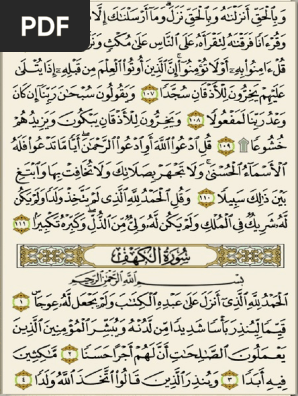 PDF
وَبِالْحَقِّ أَنزَلْنَٰهُ وَبِالْحَقِّ نَزَلَ وَمَا أَرْسَلْنَٰكَ إِلَّا
وَقُرْءَانًا فَرَقْنَٰهُ لِتَقْرَأَهُ عَلَى النَّاسِ عَلَىٰ مُكْثٍ
قُلْ ءَامِنُوا بِهِ أَوْ لَا تُؤْمِنُوا إِنَّ الَّذِينَ أُوتُوا الْعِلْمَ مِن قَبْلِهِ إِذَا يُتْلَىٰ
عَلَيْهِمْ يَخِرُّونَ لِلْأَذْقَانِ سُجَّدًا ١٠٧ وَيَقُولُونَ سُبْحَٰنَ رَبِّنَا إِن كَانَ
وَعْدُ رَبِّنَا لَمَفْعُولًا ١٠٨ وَيَخِرُّونَ لِلْأَذْقَانِ يَبْكُونَ وَيَزِيدُهُمْ
خُشُوعًا ۩ ١٠٩ قُلِ ادْعُوا اللَّهَ أَوِ ادْعُوا الرَّحْمَٰنَ أَيًّا مَّا تَدْعُوا فَلَهُ
الْأَسْمَاءُ الْحُسْنَىٰ وَلَا تَجْهَرْ بِصَلَاتِكَ وَلَا تُخَافِتْ بِهَا وَابْتَغِ
بَيْنَ ذَٰلِكَ سَبِيلًا ١١٠ وَقُلِ الْحَمْدُ لِلَّهِ الَّذِي لَمْ يَتَّخِذْ وَلَدًا وَلَمْ يَكُن
لَّهُ شَرِيكٌ فِي الْمُلْكِ وَلَمْ يَكُن لَّهُ وَلِيٌّ مِّنَ الذُّلِّ وَكَبِّرْهُ تَكْبِيرًا ١١١
سُورَةُ الْكَهْفِ
بِسْمِ اللَّهِ الرَّحْمَٰنِ الرَّحِيمِ
الْحَمْدُ لِلَّهِ الَّذِي أَنزَلَ عَلَىٰ عَبْدِهِ الْكِتَٰبَ وَلَمْ يَجْعَل لَّهُ عِوَجًا ١
قَيِّمًا لِّيُنذِرَ بَأْسًا شَدِيدًا مِّن لَّدُنْهُ وَيُبَشِّرَ الْمُؤْمِنِينَ الَّذِينَ
يَعْمَلُونَ الصَّٰلِحَٰتِ أَنَّ لَهُمْ أَجْرًا حَسَنًا ٢ مَّٰكِثِينَ
فِيهِ أَبَدًا ٣ وَيُنذِرَ الَّذِينَ قَالُوا اتَّخَذَ اللَّهُ وَلَدًا ٤